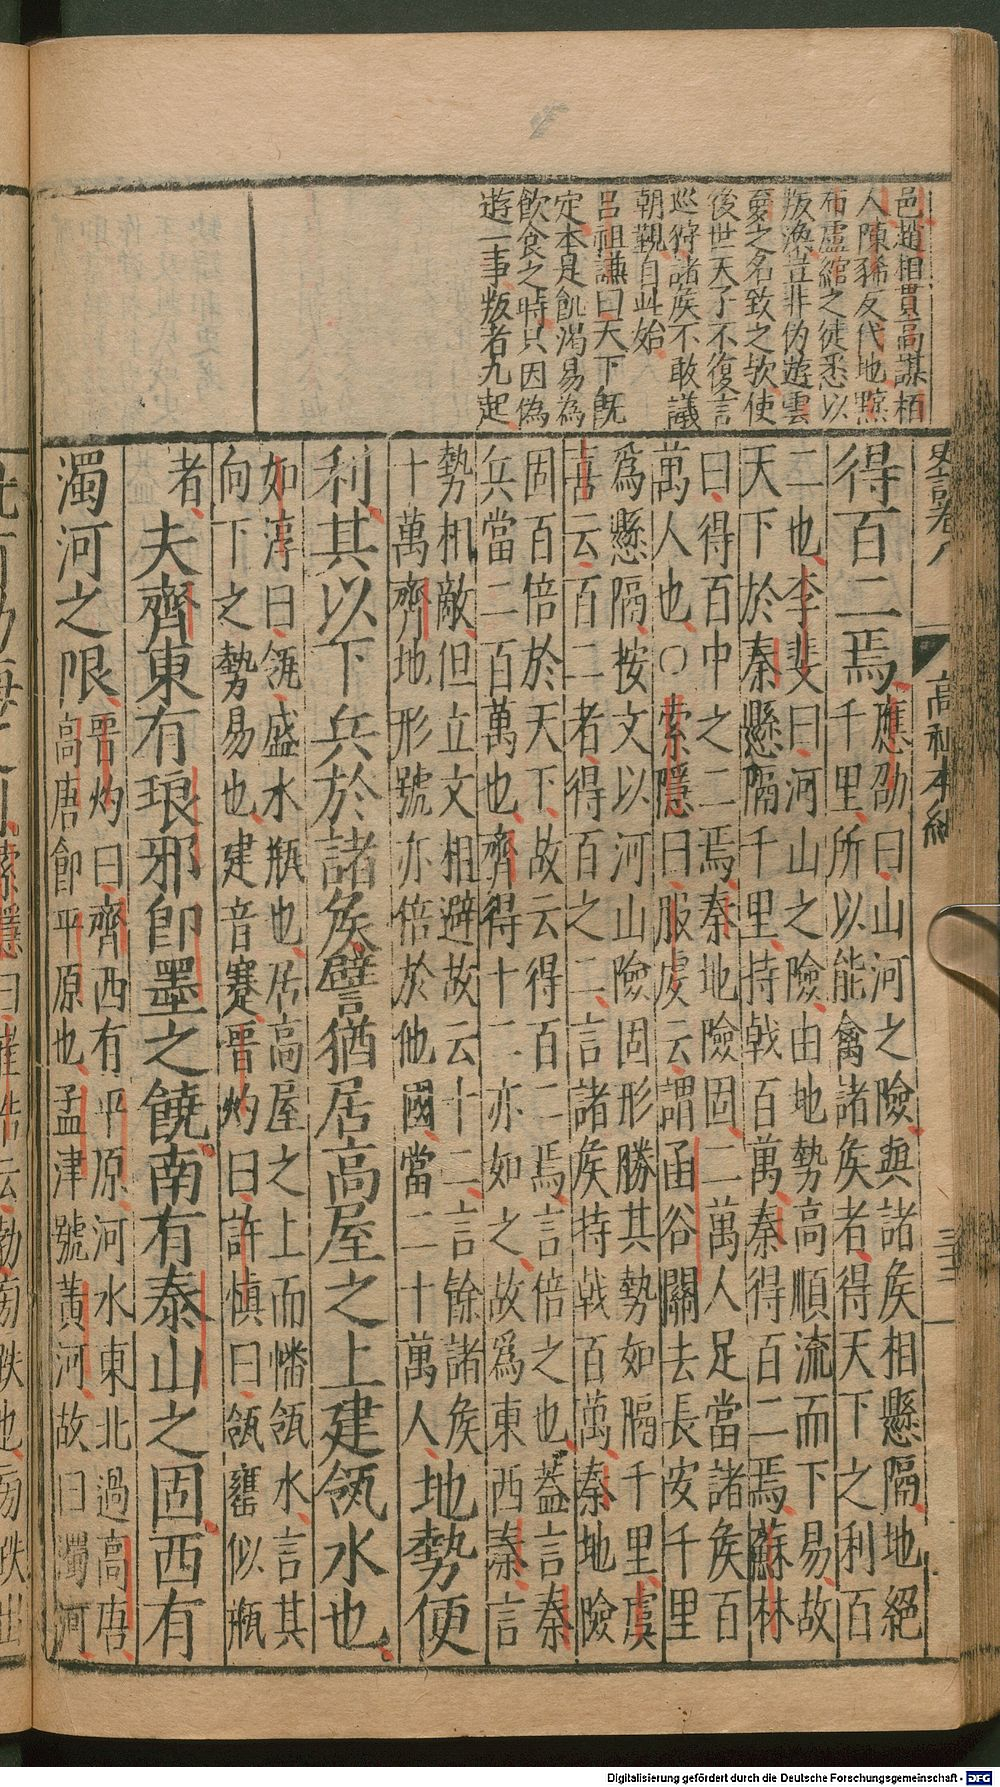 邑趙相貫高謀栢
人陳豨反代地黥
布盧綰之徒悉以
叛漢豈非伪遊雲
夢之名致之欤使
後世天子不復言
巡狩諸矦不敢議
朝覲自此始
呂祖謙曰天下旣
定本是飢渴易為
飲食之時只因偽
遊一事叛者九起
史記卷八
高祖本紀
三十二
得百二焉
應劭曰山河之險與諸矦相懸隔地絕
千里所以能禽諸矦者得天下之利百
二也李斐曰河山之險由地勢高順流而下易故
天下於秦懸隔千里持戟百萬秦得百二焉蘇林
曰得百中之二焉秦地險固二萬人足當諸矦百
萬人也〇索隱曰服虔云謂函谷關去長安千里
爲懸隔按文以河山險固形勝其勢如隔千里虞
喜云百二者得百之二言諸矦持戟百萬秦地險
固百倍於天下故云得百二焉言倍之也蓋言秦
兵當二百萬也齊得十二亦如之故爲東西秦言
勢相敵但立文相避故云十二言餘諸矦
十萬齊地形號亦倍於他國當二十萬人
地勢便
利其以下兵於諸矦譬猶居高屋之上建瓴水也
如淳曰瓴盛水瓶也居高屋之上而幡瓴水言其
向下之勢易也建音蹇晋灼曰許慎曰瓴罋似瓶
者
夫齊東有琅邪卽墨之饒南有泰山之固西有
濁河之限
晋灼曰齊西有平原河水東北過高唐
高唐卽平原也孟津號黃河故曰濁河
Digitalisierung gefördert durch die Deutsche Forschungsgemeinschaft - DFG